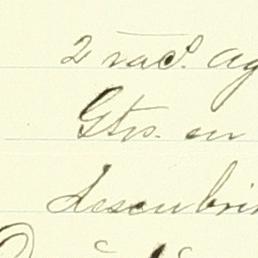 2 vac.s ag
Gtos. en
descubri